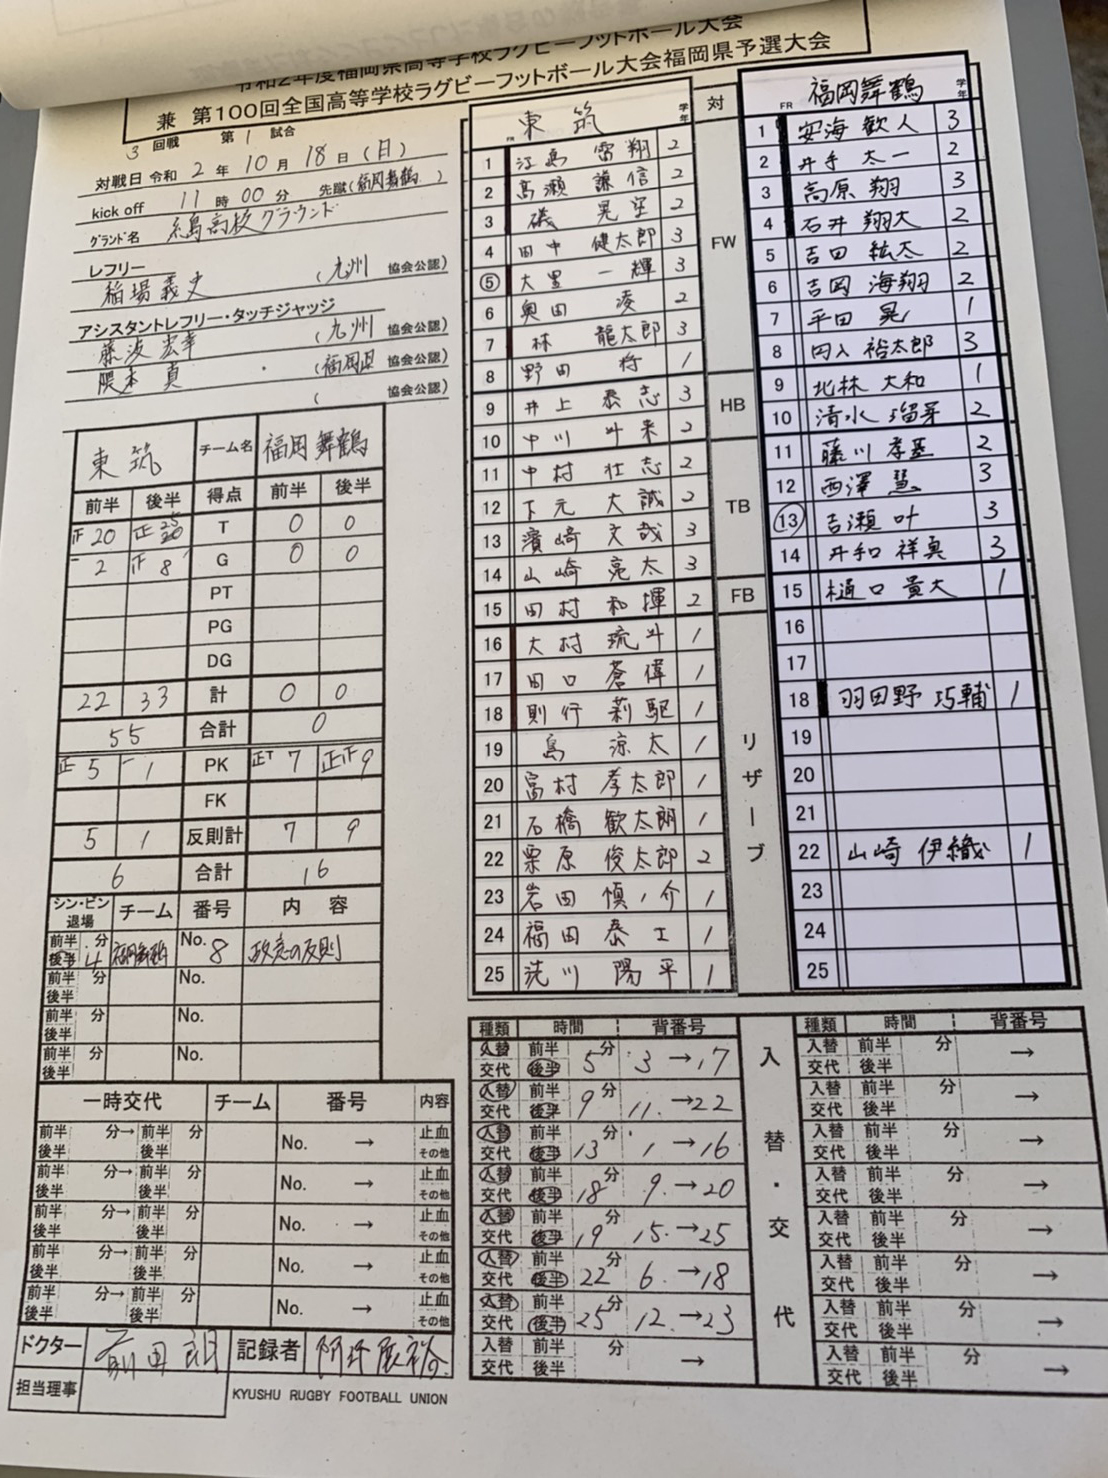 令和2年度福岡県高等学校ラグビーフットボール大会
兼 第100回全国高等学校ラグビーフットボール大会福岡県予選大会
3 回戦 第 1 試合
対戦日 令和 2 年 10 月 18 日 (日)
kick off 11 時 00 分 先蹴 (福岡舞鶴)
グランド名 糸島高校グラウンド
レフリー
稲場義史 (九州 協会公認)
アシスタントレフリー・タッチジャッジ
藤波宏幸 (九州 協会公認)
隈本 真 (福岡県 協会公認)
( 協会公認)
東筑 チーム名 福岡舞鶴
前半 後半 得点 前半 後半
正 20 正 25 T 0 0
一 2 正 8 G 0 0
PT
PG
DG
22 33 計 0 0
55 合計 0
正 5 一 1 PK 正T 7 正正 9
FK
5 1 反則計 7 9
6 合計 16
シン・ビン 退場 チーム 番号 内容
前半 後半 4 分 福岡舞鶴 No. 8 故意の反則
前半 後半 分 No.
前半 後半 分 No.
前半 後半 分 No.
一時交代 チーム 番号 内容
前半 後半 分→ 前半 後半 分 No. → 止血 その他
前半 後半 分→ 前半 後半 分 No. → 止血 その他
前半 後半 分→ 前半 後半 分 No. → 止血 その他
前半 後半 分→ 前半 後半 分 No. → 止血 その他
前半 後半 分→ 前半 後半 分 No. → 止血 その他
ドクター 前田 朗 記録者
担当理事
KYUSHU RUGBY FOOTBALL UNION
FR 東筑 学年
1 江島 雷翔 2
2 髙瀬 謙信 2
3 磯 晃空 2
4 田中 健太郎 3
⑤ 大里 一輝 3
6 奥田 凌 2
7 林 龍太郎 3
8 野田 将 1
9 井上 泰志 3
10 中川 斗来 2
11 中村 壮志 2
12 下元 大誠 2
13 濱﨑 文哉 3
14 山﨑 亮太 3
15 田村 和揮 2
16 大村 琉斗 1
17 田口 蒼偉 1
18 則行 莉駆 1
19 島 涼太 1
20 富村 孝太郎 1
21 石橋 歓太朗 1
22 栗原 俊太郎 2
23 岩田 慎ノ介 1
24 福田 泰士 1
25 洗川 陽平 1
対
FW
HB
TB
FB
リザーブ
FR 福岡舞鶴 学年
1 安海 歓人 3
2 井手 太一 2
3 高原 翔 3
4 石井 翔大 2
5 吉田 紘太 2
6 吉岡 海翔 2
7 平田 晃 1
8 円入 裕太郎 3
9 北林 大和 1
10 清水 瑠芽 2
11 藤川 孝基 2
12 西澤 慧 3
⑬ 吉瀬 叶 3
14 井和 祥真 3
15 樋口 貴大 1
16
17
18 羽田野 巧輔 1
19
20
21
22 山崎 伊織 1
23
24
25
種類 時間 背番号
入替 交代 前半 後半 5 分 3 → 17
入替 交代 前半 後半 9 分 11 → 22
入替 交代 前半 後半 13 分 1 → 16
入替 交代 前半 後半 18 分 9 → 20
入替 交代 前半 後半 19 分 15 → 25
入替 交代 前半 後半 22 分 6 → 18
入替 交代 前半 後半 25 分 12 → 23
入替 交代 前半 後半 分 →
入替・交代
種類 時間 背番号
入替 交代 前半 後半 分 →
入替 交代 前半 後半 分 →
入替 交代 前半 後半 分 →
入替 交代 前半 後半 分 →
入替 交代 前半 後半 分 →
入替 交代 前半 後半 分 →
入替 交代 前半 後半 分 →
入替 交代 前半 後半 分 →